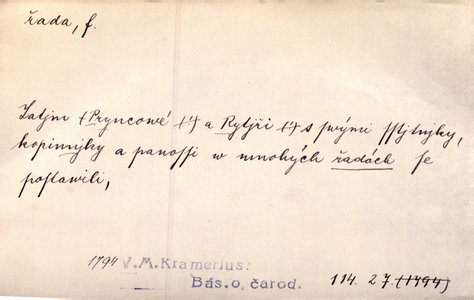 řada, f.
Zatjm (Pryncowé (!) a Rytjři (!) s swými Sstjtnjky,
kopinnjky a panossi w mnohých řadách se
postawili,
1794 V. M. Kramerius:
Bás. o čarod.
114. 27. (1794)